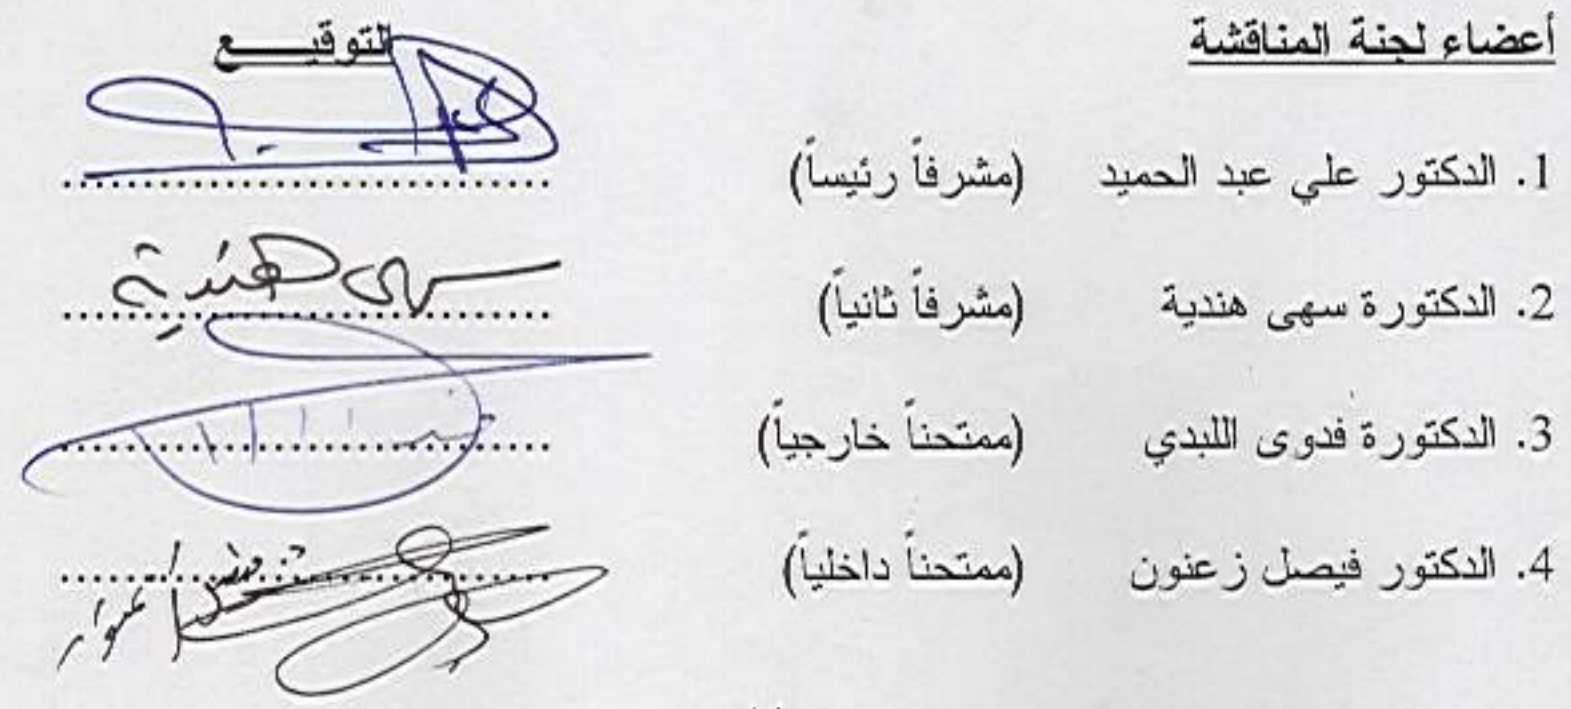 أعضاء لجنة المناقشة التوقيـــــع
1. الدكتور علي عبد الحميد (مشرفاً رئيساً) ..............................
2. الدكتورة سهى هندية (مشرفاً ثانياً) سهى هندية
3. الدكتورة فدوى اللبدي (ممتحناً خارجياً) ..............................
4. الدكتور فيصل زعنون (ممتحناً داخلياً) ..............................